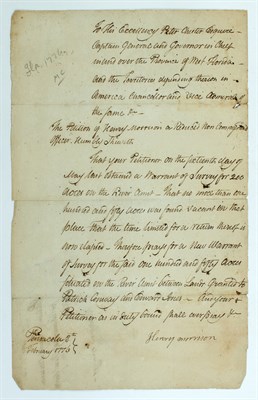 To His Excellency Peter Chester Esquire
Captain General and Governor in Chief
in and over the Province of West Florida
and the Territories depending thereon in
America Chancellor and Vice Admiral of
the same &c
The Petition of Henry Morrison a Reduced Non Commissioned
officer Humbly Sheweth
That your Petitioner on the day of
May last obtained a Warrant of Survey for 200
acres on the River Amit - that no more than one
hundred and fifty acres was found vacant on that
place that the time limited for a return thereof is
now elapsed - Therefore prays for a New Warrant
of Survey for the said one hundred and fifty acres
situated on the River Amit between Lands Granted to
Patrick Conway and Edward And your
Petitioner as in duty bound shall ever pray &c
Henry Morrison
Pensacola 8th
1773